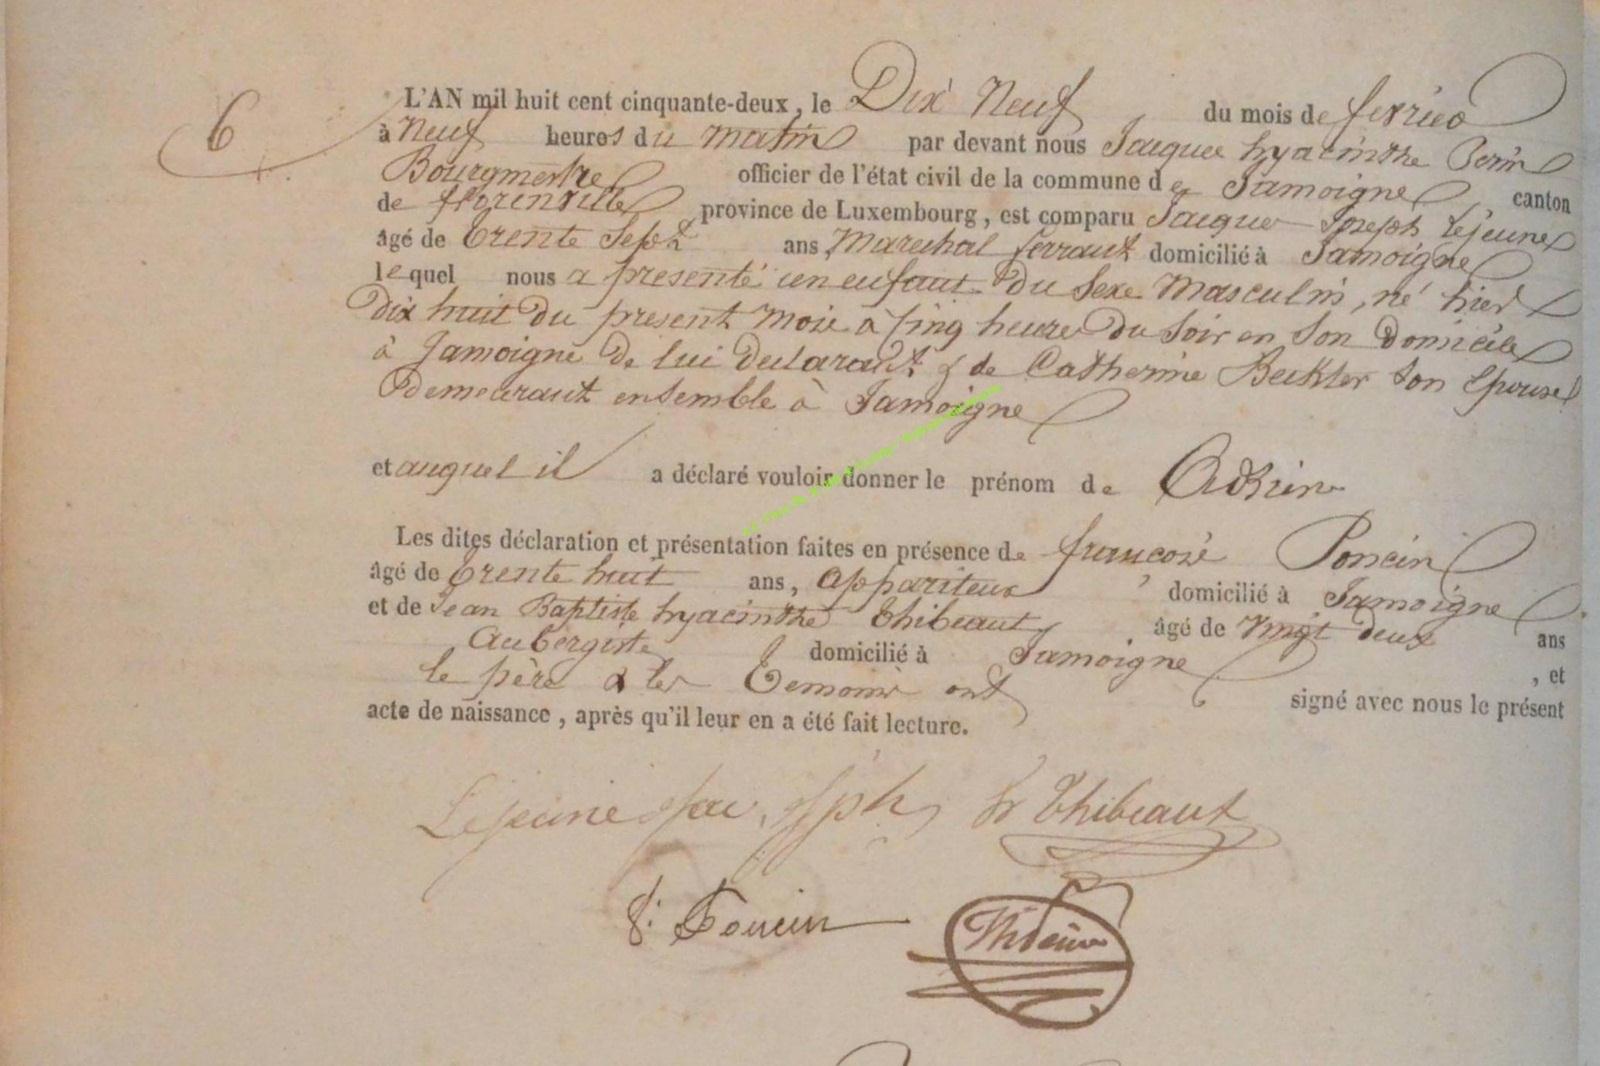 6
L'AN mil huit cent cinquante-deux, le Dix Neuf du mois de fevrier
à Neuf heures du matin par devant nous Jacques hyacinthe Perin
Bourgmestre officier de l'état civil de la commune de Jamoigne canton
de florenville province de Luxembourg, est comparu Jacques Joseph Lejeune
âgé de trente Sept ans Marechal ferrant domicilié à Jamoigne
lequel nous a presenté un enfant du Sexe Masculin, né hier
Dix huit du present Mois à Cinq heures du Soir en Son Domicile
à Jamoigne de lui declarant & de Catherine Son Epouse
Demeurant ensemble à Jamoigne
et auquel il a déclaré vouloir donner le prénom de Adrien
Les dites déclaration et présentation faites en présence de françois Poncin
âgé de trente huit ans, appariteur domicilié à Jamoigne
et de Jean Baptiste hyacinthe thibeaut âgé de Vingt deux ans
Aubergiste domicilié à Jamoigne, et
le père & les temoins ont signé avec nous le présent
acte de naissance, après qu'il leur en a été fait lecture.
Lejeune Jac Jsph H Thibeaut
f: Poncin